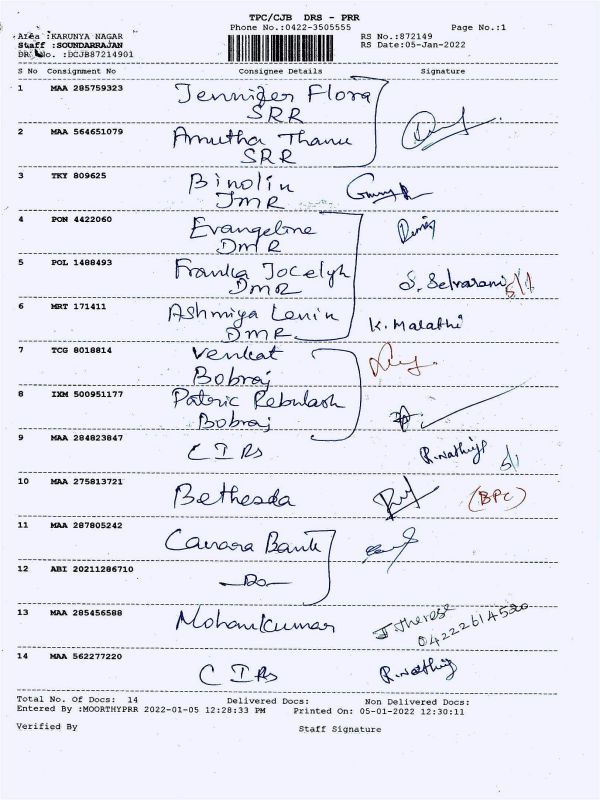 TPC/CJB DRS - PRR
Phone No.:0422-3505555 Page No.:1
Area :KARUNYA NAGAR RS No.:872149
Staff :SOUNDARRAJAN RS Date:05-Jan-2022
DR No. :DCJB87214901
S No Consignment No Consignee Details Signature
1 MAA 285759323 Jennifer Flora
SRR
2 MAA 564651079 Amutha Thanu
SRR
3 TKY 809625 Binolin
JMR
4 PON 4422060 Evangeline
DMR
5 POL 1488493 Franka Jocelyn S. Selvarani 5/1
DMR
6 MRT 171411 Ashmiya Lenin K. Malathi
DMR
7 TCG 8018814 Venkat
Bobraj
8 IXM 500951177 Patric
Bobraj
9 MAA 284823847 C I Rs R. Nathiya 5/1
10 MAA 275813721 Bethesda (BPC)
11 MAA 287805242 Canara Bank
12 ABI 20211286710 —Do—
13 MAA 285456588 Mohankumar J. Therese
04222614520
14 MAA 562277220 C I Rs R. Nathiya
Total No. Of Docs: 14 Delivered Docs: Non Delivered Docs:
Entered By :MOORTHYPRR 2022-01-05 12:28:33 PM Printed On: 05-01-2022 12:30:11
Verified By Staff Signature